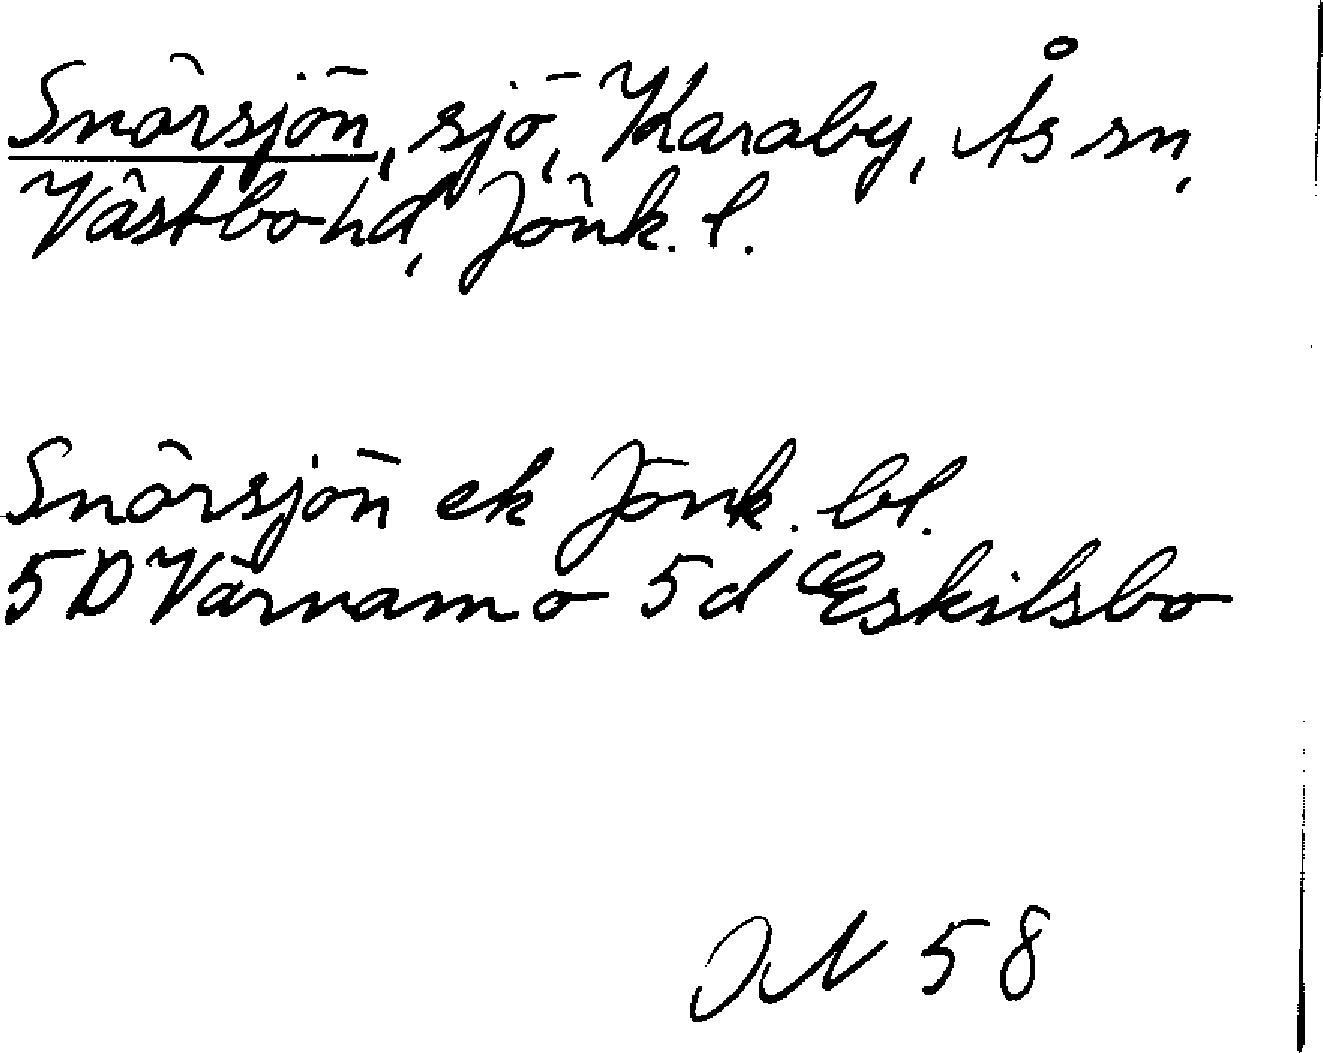 Snärsjön, sjö, Karaby, Ås sn,
Västbo hd, Jönk. l.
Snärsjön ek Jönk. bl.
5D Värnamo 5d Eskilsbo
58